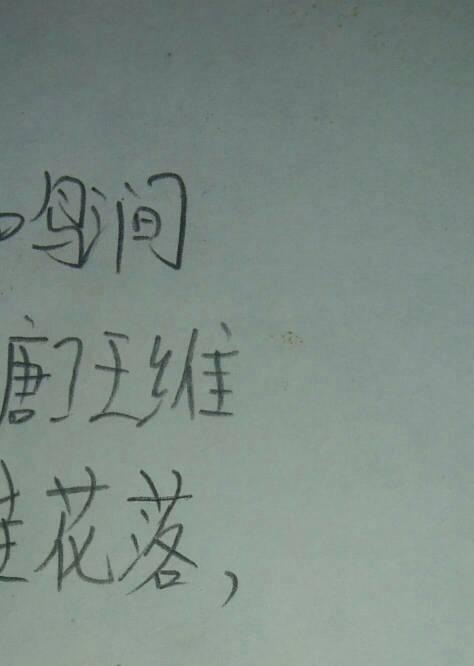 鸣涧
唐]王维
桂花落，